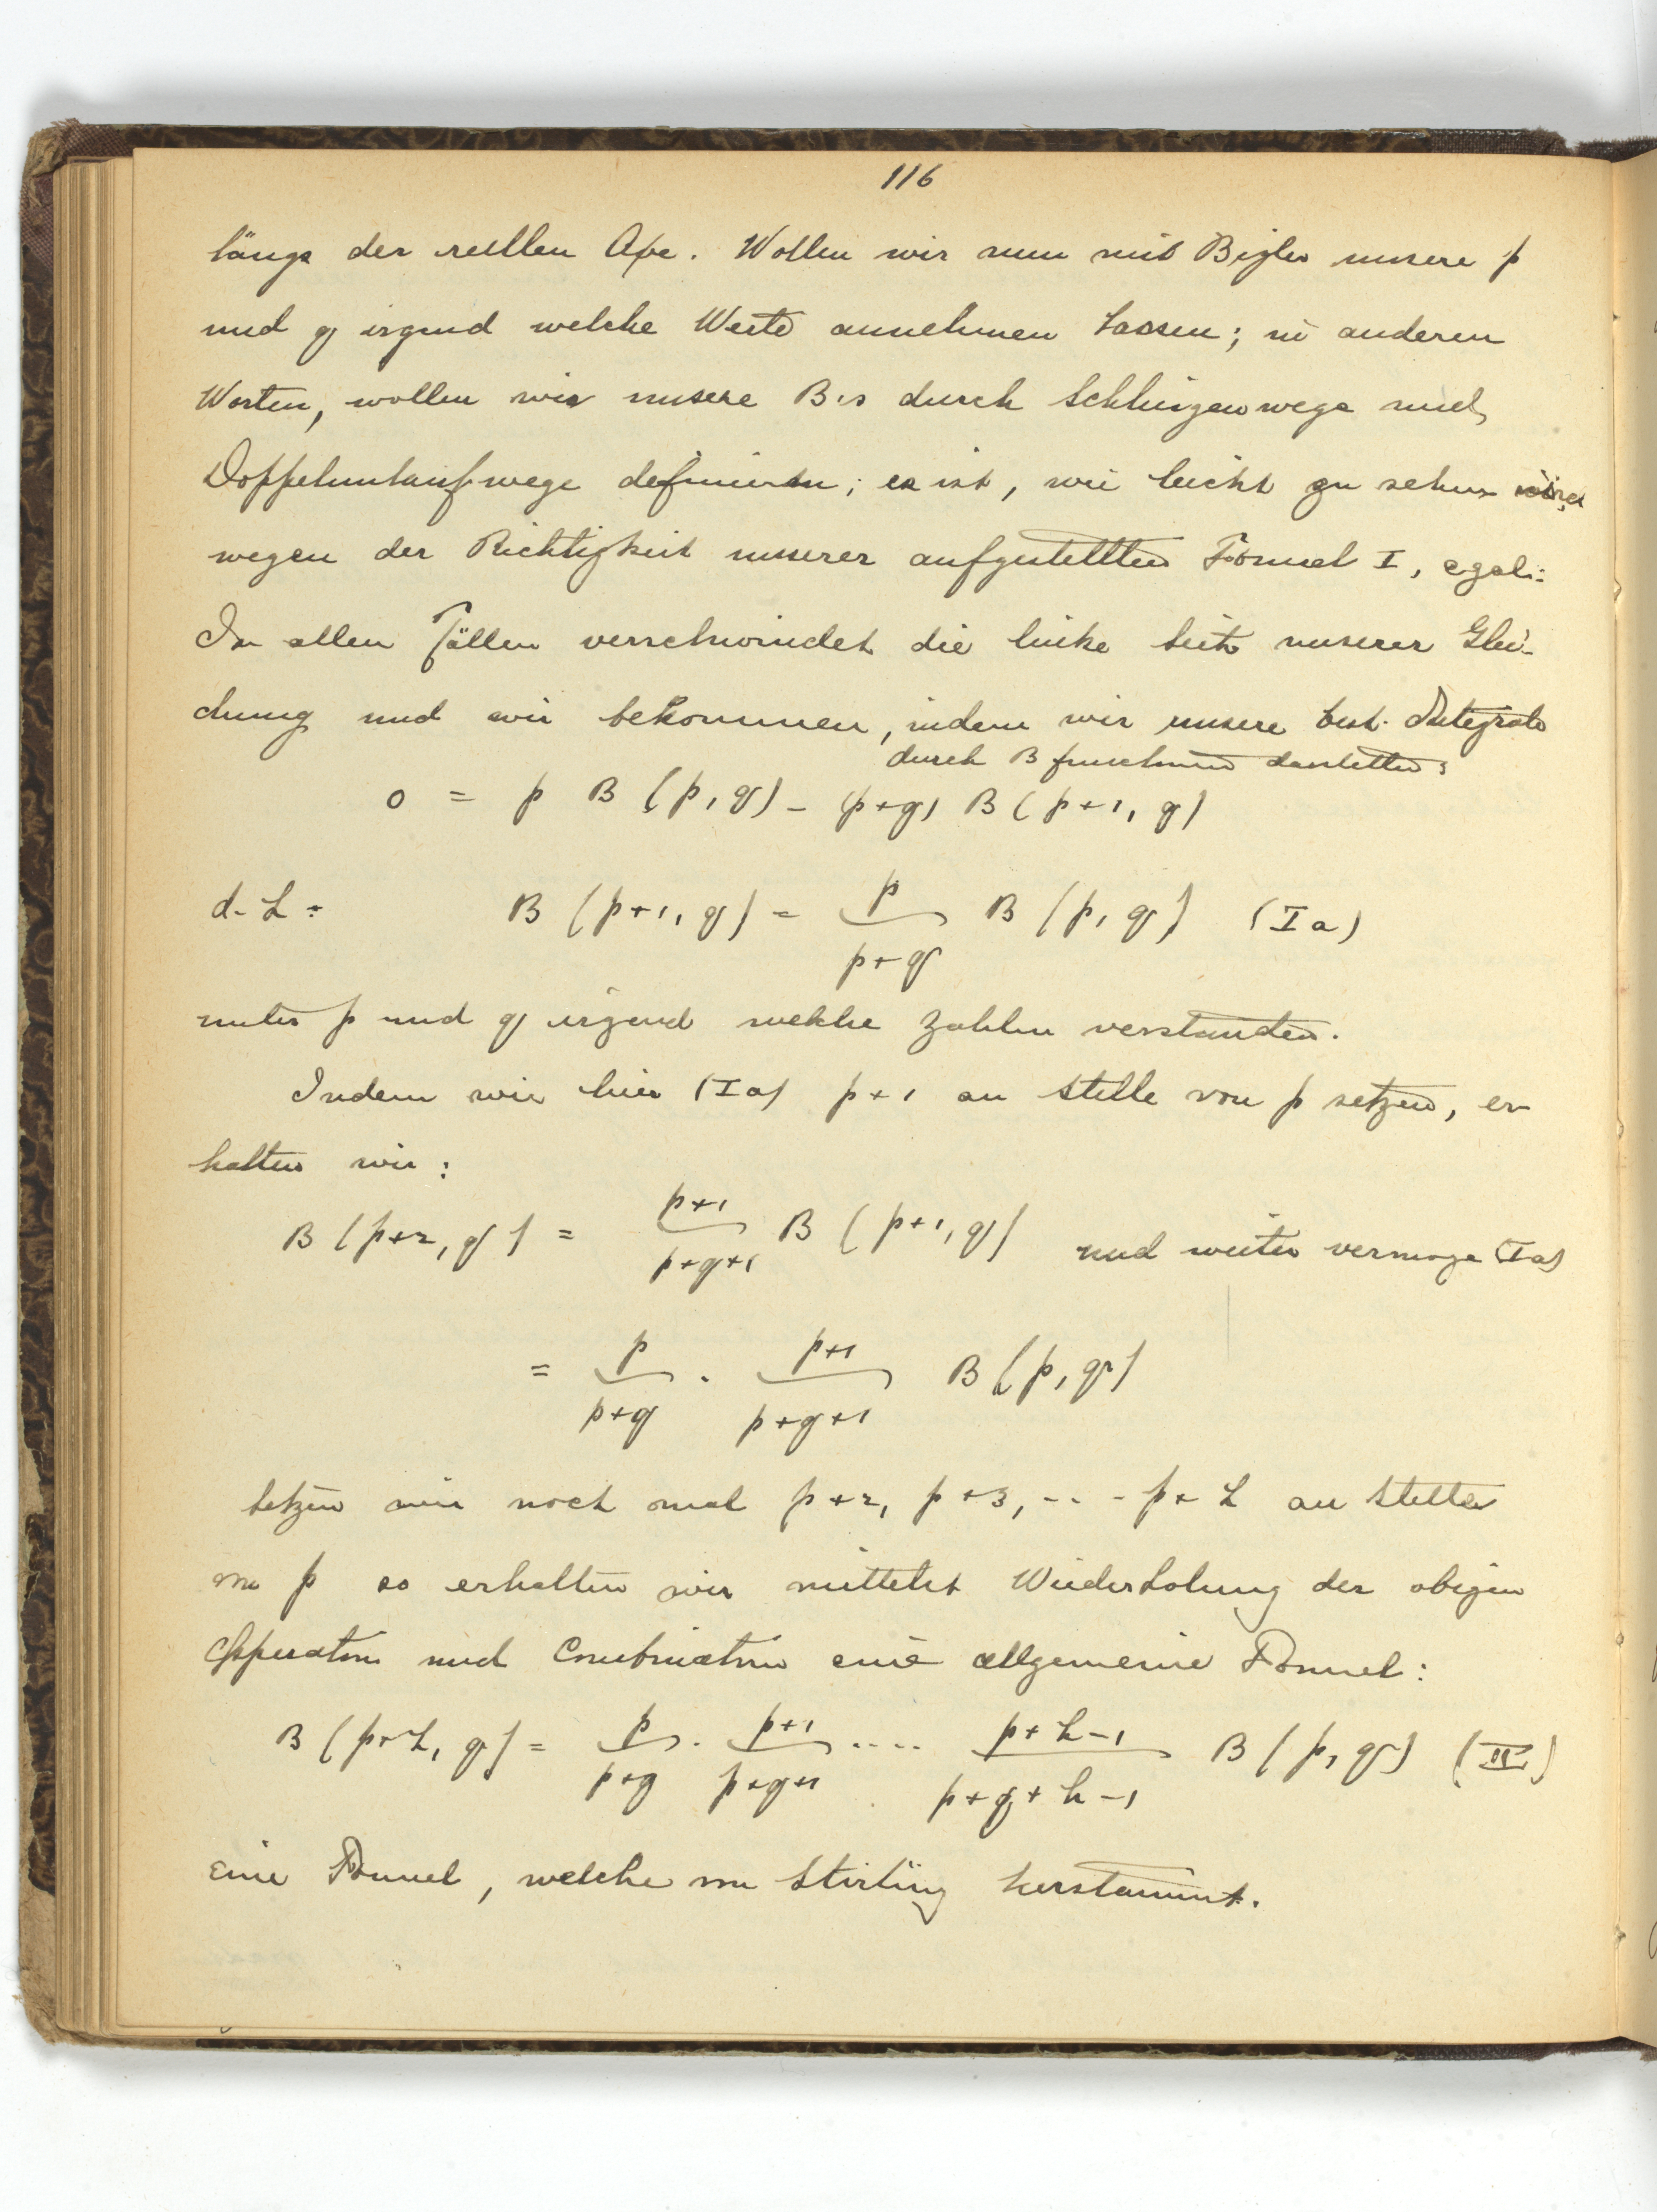 116
längs der reellen Axe. Wollen wir nun mit Bigler unsere p
und q irgend welche Werte annehmen lassen; in anderen
Worten, wollen wir unsere B's durch Schlingenwege und
Doppelumlaufwege definieren; es ist, wie leicht zu sehen
wegen der Richtigkeit unserer aufgestellten Formel I, egal:
In allen Fällen verschwindet die linke Seite unserer Glei-
chung und wir bekommen, indem wir unsere best. Integrale
durch B functionen darstellen:
0 = p B (p, q) - (p+q) B (p+1, q)
d. h: B (p+1, q) = p/(p+q) B (p, q) (I a)
unter p und q irgend welche Zahlen verstanden.
Indem wir hier (Ia) p+1 an Stelle von p setzen, er-
halten wir:
B (p+2, q) = (p+1)/(p+q+1) B (p+1, q) und weiter vermöge (Ia)
= p/(p+q) . (p+1)/(p+q+1) B (p, q)
Setzen wir noch mal p+2, p+3, --- p+h an Stelle
von p so erhalten wir mittelst Wiederholung der obigen
Operation und Combination eine allgemeine Formel:
B (p+h, q) = p/(p+q) . (p+1)/(p+q+1) .... (p+h-1)/(p+q+h-1) B (p, q) (II)
eine Formel, welche von Stirling herstammt.